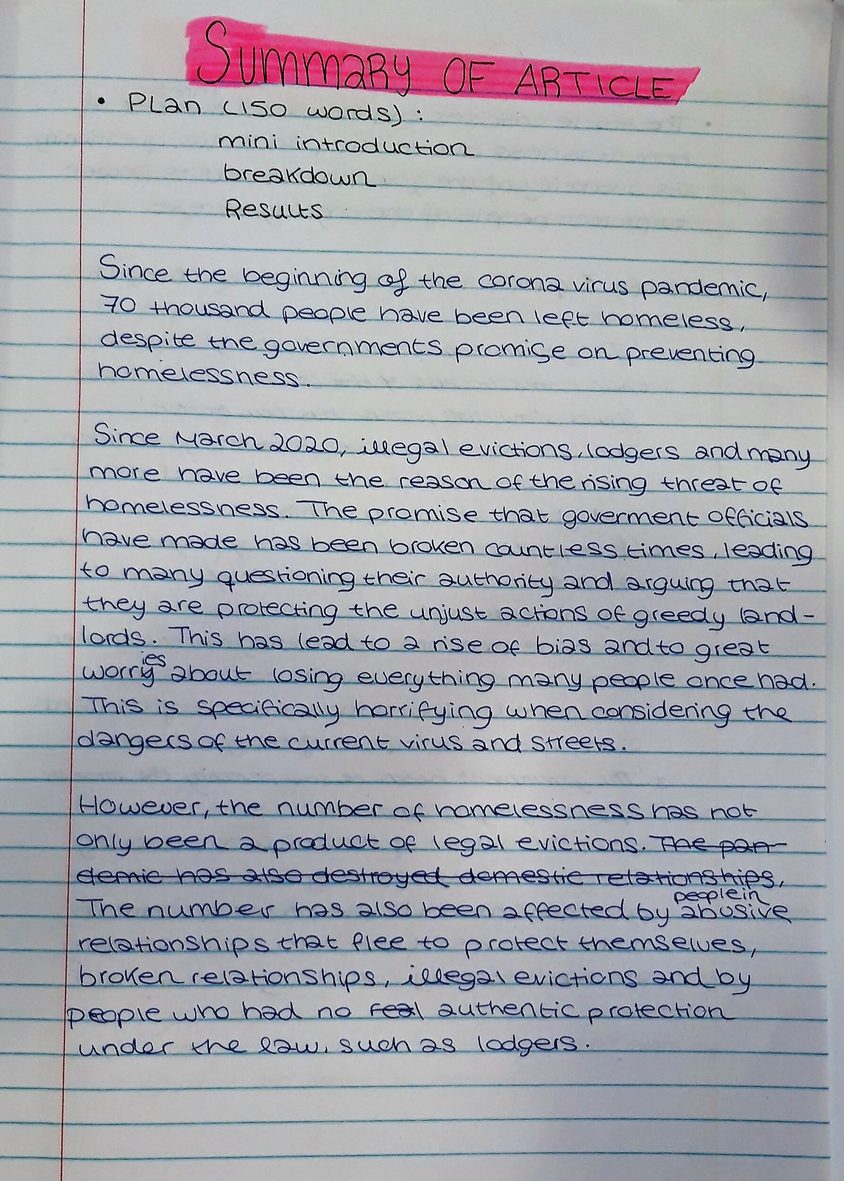 SUMMARY OF ARTICLE
• Plan (150 words) :
mini introduction
breakdown
Results
Since the beginning of the corona virus pandemic,
70 thousand people have been left homeless,
despite the governments promise on preventing
homelessness.
Since March 2020, illegal evictions, lodgers and many
more have been the reason of the rising threat of
homelessness. The promise that goverment officials
have made has been broken countless times, leading
to many questioning their authority and arguing that
they are protecting the unjust actions of greedy land-
lords. This has lead to a rise of bias and to great
worries about losing everything many people once had.
This is specifically horrifying when considering the
dangers of the current virus and streets.
However, the number of homelessness has not
only been a product of legal evictions. The pan-
demic has also destroyed demestic relationships,
The number has also been affected by people in abusive
relationships that flee to protect themselves,
broken relationships, illegal evictions and by
people who had no real authentic protection
under the law, such as lodgers.